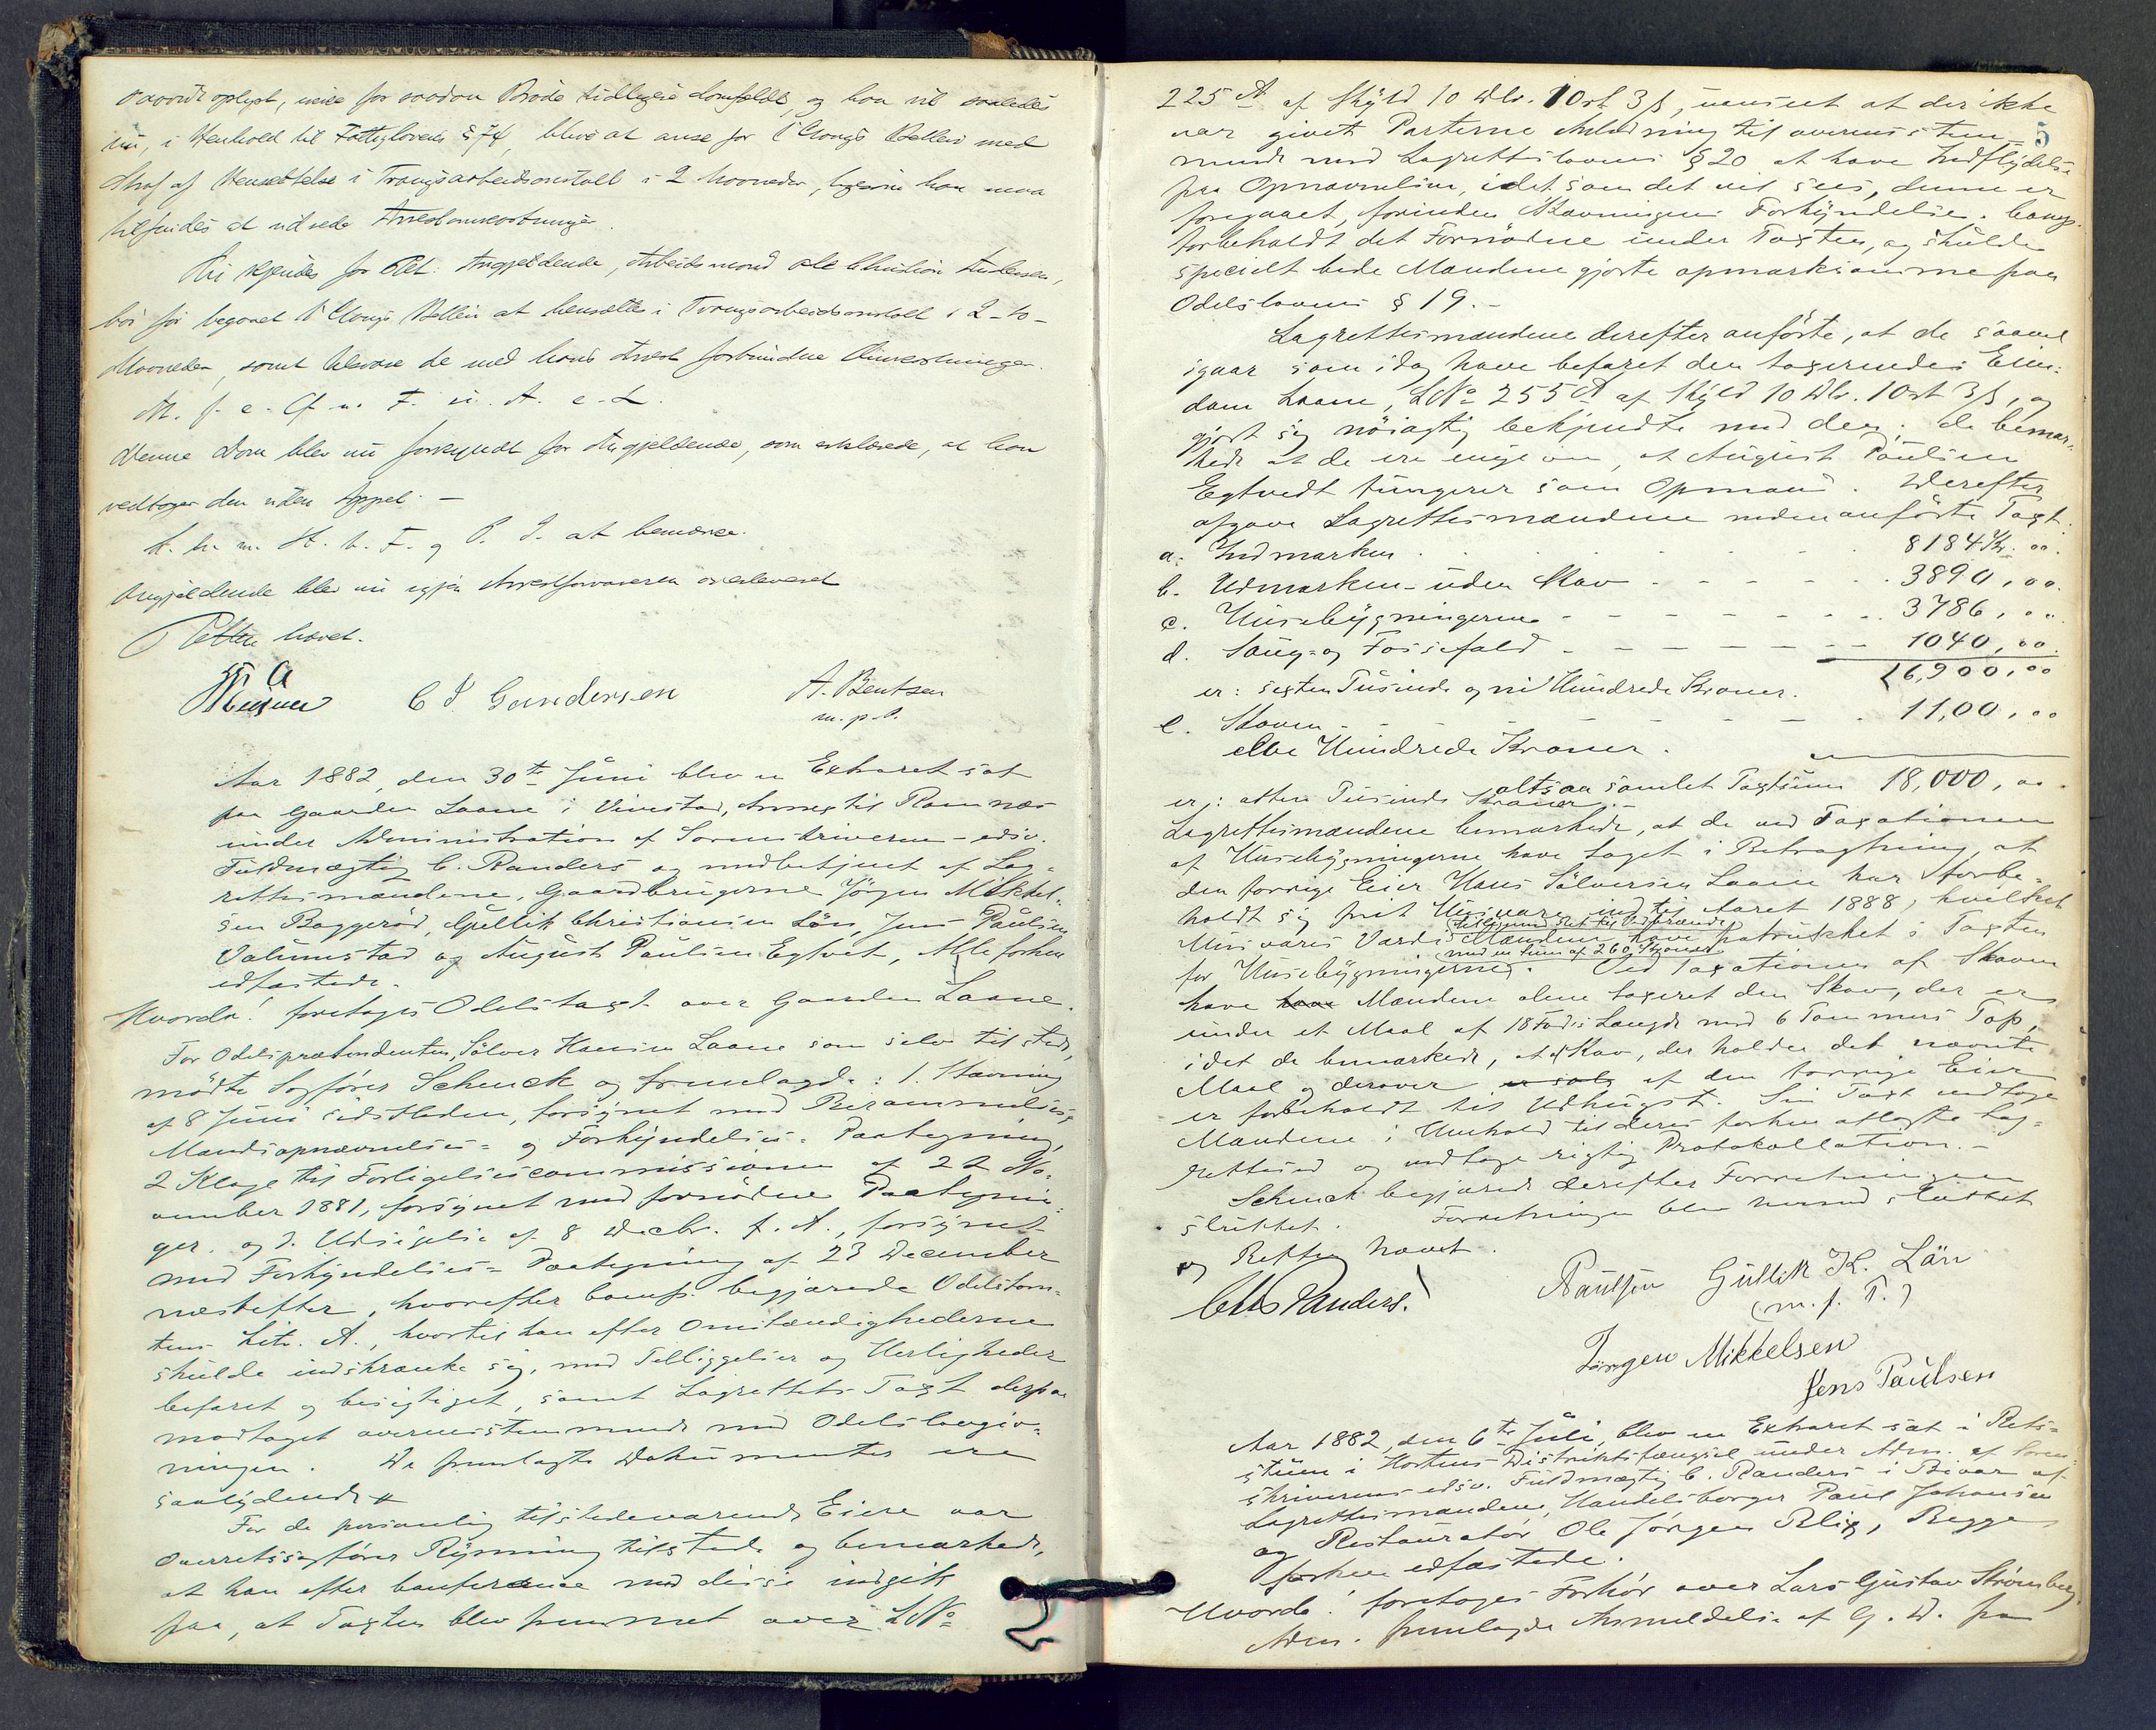 oplyst, ikke for saadan Brøde tidligere domfældt, og han vil saaledes
nu, i Henhold til Fattiglovens § 74, blive at anse for 1 Gangs Betleri med
Straf af Hensættelse i Tvangsarbeidsanstalt i 2 Maaneder, han maa
tilfindes at udrede Arrestomkostninger.
Thi kjendes for Ret: Angjeldende, Arbeidsmand Ole Christian
bør for begaaet 1 Gangs Betleri at hensættes i Tvangsarbeidsanstalt i 2 - to -
Maaneder, samt udrede de med hans Arrest forbundne Omkostninger.
Denne Dom blev nu forkyndt for Angjeldende, som erklærede, at han
vedtager den uden Appel. -
at bemærke.
Angjeldende blev nu igjen Arrestforvareren overleveret
Retten hævet.
C J Gundersen A. Bentsen
m. p. P.
Aar 1882, den 30te Juni blev en Extraret sat
paa Gaarden Laane i Vivestad, Annex til Ramnæs
under Administration af Sorenskriverens edsv.
Fuldmægtig C. Randers og medbetjent af Lag-
rettesmændene, Gaardbrugerne Jörgen Mikkel-
sen Baggeröd, Gullik Christiansen Län, Jens Paulsen
Valumstad og August Paulsen Egtvet, Alle forhen
edfæstede.
Hvorda! foretages Odelstaxt over Gaarden Laane.
For Odelsprætendenten, Sölver Hansen Laane som selv tilstede,
mödte Sagförer Schenck og fremlagde: 1. Stævning
af 8 Juni sidstleden, forsynet med Berammelses,
Mandsopnævnelses- og Forkyndelses-Paategning,
2 Klage til Forligelsescommissionen af 22 No-
vember 1881, forsynet med fornödne Paategnin-
ger. og 3. Udsigelse af 8 Decbr. f. A., forsynet
med Forkyndelses-Paategning af 23 December
næstefter, hvorefter Comp. begjærede Odelstom-
ten Litr. A., hvortil han efter Omstændighederne
skulde indskrænke sig, med Tilliggelser og Herligheder
befaret og besigtiget, samt Lagrettets Taxt derpaa
modtaget overensstemmende med Odelslovgiv-
ningen. De fremlagte Dokumenter ere
saalydende
For de personlig tilstedeværende Eiere var
Overretssagförer Rynning tilstede og bemærkede,
at han efter Conference med disse indgik
paa, at Taxten blev fremmet over LNo
5
225 A af Skyld 10 Dlr. 1 Ort 3 ß, uanseet at der ikke
var givet Parterne Anledning til overensstem-
mende med Lagrettesloven § 20 at have Indflydelse
paa Opnævnelsen, idet som det vil sees, denne er
foregaaet, forinden Stævningens Forkyndelse. Comp.
forbeholdt det Fornödne under Taxten, og skulde
specielt bede Mændene gjorte opmærksomme paa
Odelslovens § 19. -
Lagrettesmændene derefter anförte, at de saavel
igaar som idag have befaret den taxerendes Eien-
dom Laane, LNo 255 A af Skyld 10 Dlr. 1 Ort 3 ß, og
gjort sig nöiagtig bekjendte med den; de bemær-
kede at de ere enige om, at August Paulsen
Egtvedt fungerer som Opmand. Derefter
afgave Lagrettesmændene nedenanförte Taxt.
a. Indmarken - - - 8184 Kr. 00.
b. Udmarken - uden Skov - - - 3890,00.
c. Husebygningerne - - - 3786,00.
d. Saug- og Fossefald - - - 1040,00.
16,900,00
er: sexten Tusinde og ni Hundrede Kroner.
e. Skoven - - - 11,00,00
elve Hundrede Kroner.
altsaa samlet Taxtsum 18,000,00.
er: atten Tusinde Kroner. -
Lagrettesmændene bemærkede, at de ved Taxationen
af Husebygningerne have taget i Betragtning, at
den forrige Eier Hans Sölversen Laane har forbe-
holdt sig frit Husvære ind til Aaret 1888, hvilket
Husværes Værdi Mændene have fratrukket i Taxten
med en Sum af 260 Kroner
for Husebygningerne. Ved Taxationen af Skoven
have have Mændene alene taxeret den Skov, der er
under et Maal af 18 Fods Længde med 6 Tommers Top,
idet de bemærkede, at Skov, der holder det nævnte
Maal og derover er solg af den forrige Eier
er forbeholdt til Udhugst. Sin Taxt vedtoge
Mændene i Henhold til deres forhen aflagte Lag-
rettesed og vedtoge rigtig Protokollation. -
Schenck begjærede derefter Forretningen
sluttet. Forretningen blev herved sluttet
og Retten hævet.
Chs Randers. APaulsen Gullik K. Län
(m. f. P.)
Jörgen Mikkelsen
Jens Paulsen
Aar 1882, den 6te Juli, blev en Extraret sat i Rets-
stuen i Hortens Distriktsfængsel under Adm. af Soren-
skriverens edsv. Fuldmægtig C. Randers i Bivær af
Lagrettesmændene, Handelsborger Paul Johansen
og Restauratör Ole Jörgen Blix, Begge
forhen edfæstede.
Hvorda! foretages Forhör over Lars Gustav Strömberg
Adm. fremlagde Anmeldelse af G. D. fra